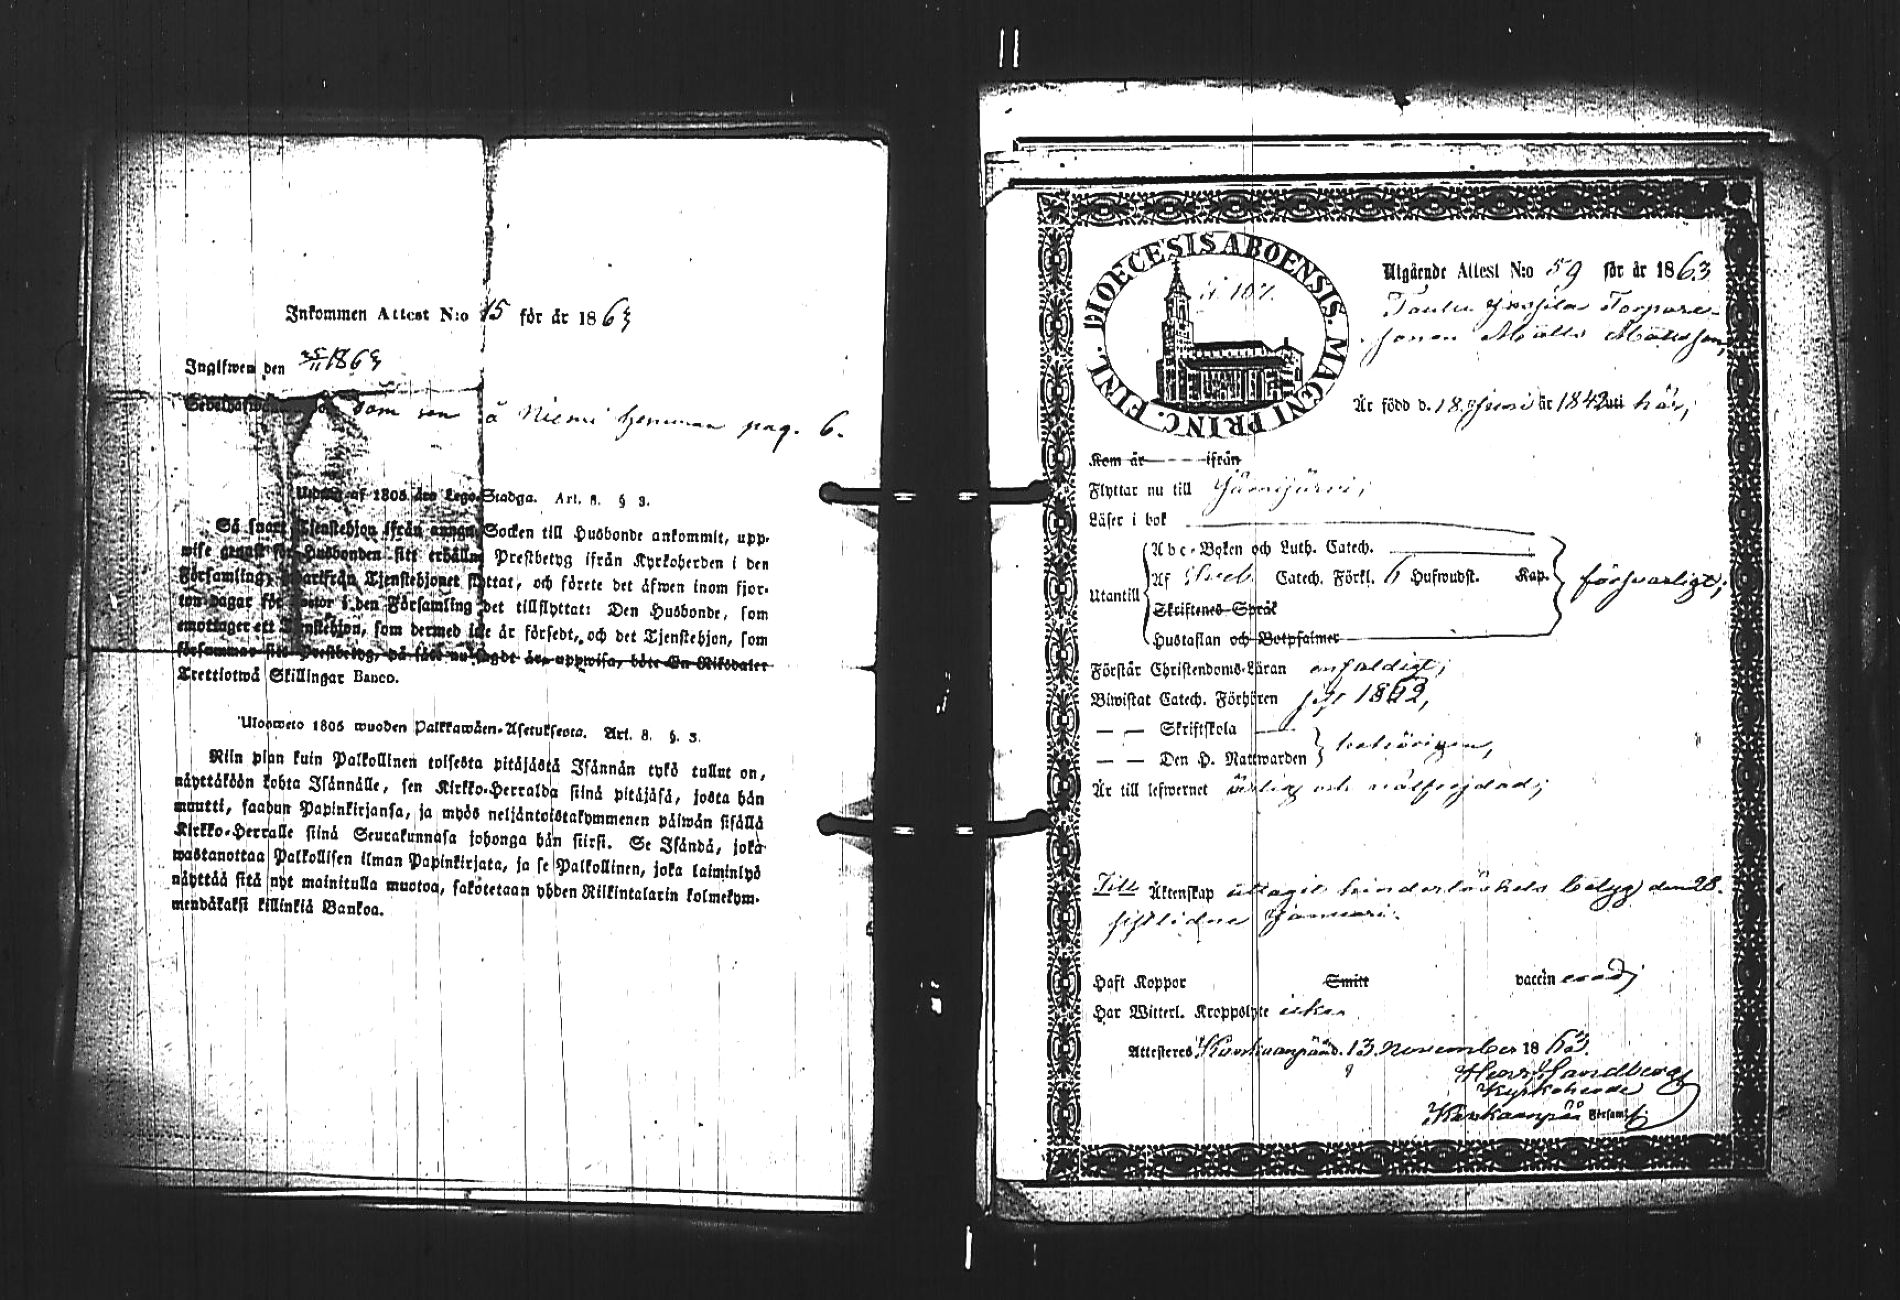 Inkommen Attest N:o 15 för år 1863
Inglfwen den 25/11 1863
som son å Niemi hemman pag. 6.
Utdrag af 1805 års Lego-Stadga. Art. 8. § 3.
Så snart Tjenstehjon ifrån annan Socken till Husbonde ankommit, upp-
wise genast för Husbonden sitt erhållne Prestbetyg ifrån Kyrkoherden i den
Församling, hwarifrån Tjenstehjonet flyttat, och förete det äfwen inom fjor-
ton dagar för Pastor i den Församling det tillflyttat: Den Husbonde, som
emottager ett Tjenstehjon, som dermed icke är försedt, och det Tjenstehjon, som
försummar sitt Prestbetyg, på sätt nu sagdt är, uppwisa, böte En Riksdaler
Trettiotwå Skillingar Banco.
Ulosweto 1805 wuoden Palkkawäen-Asetuksesta. Art. 8. §. 3.
Niin pian kuin Palkollinen toisesta pitäjästä Isännän tykö tullut on,
näyttäköön kohta Isännälle, sen Kirkko-Herralda siinä pitäjäsä, josta hän
muutti, saadun Papinkirjansa, ja myös neljäntoistakymmenen päiwän sisällä
Kirkko-Herralle siinä Seurakunnasa johonga hän siirsi. Se Isändä, joka
wastanottaa Palkollisen ilman Papinkirjata, ja se Palkollinen, joka laiminlyö
näyttää sitä nyt mainitulla muotoa, sakotetaan yhden Riikintalarin kolmekym-
mendäkaksi killinkiä Bankoa.
FINL. DIOECESIS ABOENSIS. MAGNI PRINC.
Utgående Attest N:o 59 för år 1863
Torpare-
sonen Matts Mattsson,
Är född d. 18 Juni år 1842 uti här,
Kom år - - - ifrån
Flyttar nu till Jämijärvi,
Läser i bok
Abc-Boken och Luth. Catech.
Utantill
Af Sveb. Catech. Förkl. 6 Hufwudst. Kap.
försvarligt,
Skriftenes Språk
Hustaflan och Botpsalmer
Förstår Christendoms-Läran enfaldigt,
Biwistat Catech. Förhören sist 1862,
— — Skriftskola
— — Den H. Nattwarden
behörigen,
Är till lefwernet ärlig och välfrejdad,
Till Äktenskap uttagit hinderlöshets betyg den 28
sistlidne Januari.
Haft Koppor Smitt vaccin erad,
Har Witterl. Kroppslyte icke.
Attesteres Kankaanpää d. 13 November 1863.
Sandberg
Kyrkoherde
Kankaanpää Församl.